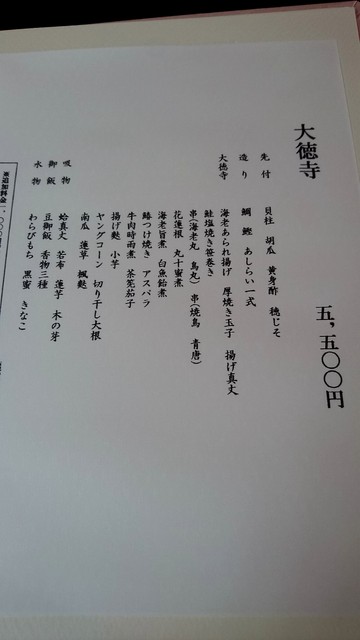 大徳寺 五,五〇〇円
先付 貝柱 胡瓜 黄身酢 穂じそ
造り 鯛 鰹 あしらい一式
大徳寺 海老あられ揚げ 厚焼き玉子 揚げ真丈
鮭塩焼き笹巻き
串(海老丸 鳥丸) 串(焼鳥 青唐)
花蓮根 丸十蜜煮
海老旨煮 白魚飴煮
鰆つけ焼き アスパラ
牛肉時雨煮 茶筅茄子
揚げ麩 小芋
ヤングコーン 切り干し大根
南瓜 蓮草 楓麩
吸物 蛤真丈 若布 蓮芋 木の芽
御飯 豆御飯 香物三種
水物 わらびもち 黒蜜 きなこ